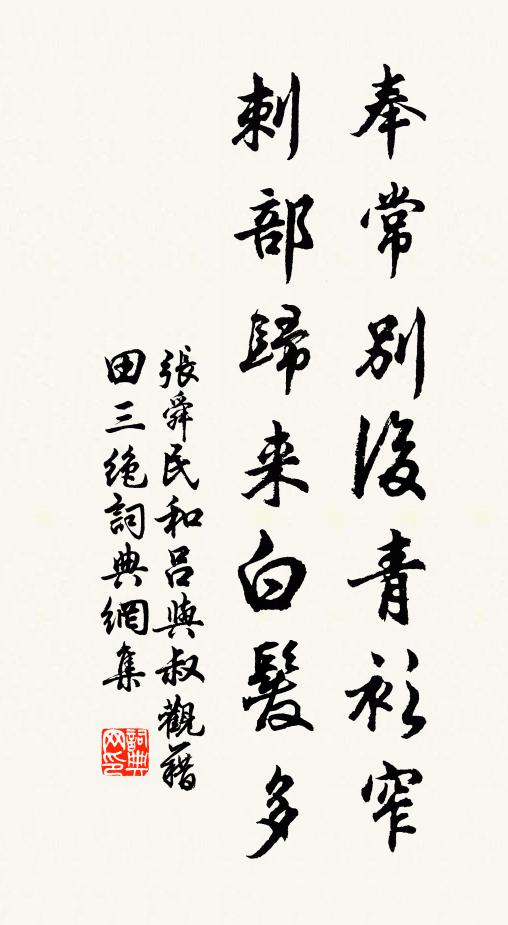 奉常別後青衫窄
刺部歸来白髮多
張舜民和呂與叔觀藉
田三絶詞典網集
詞典
网印